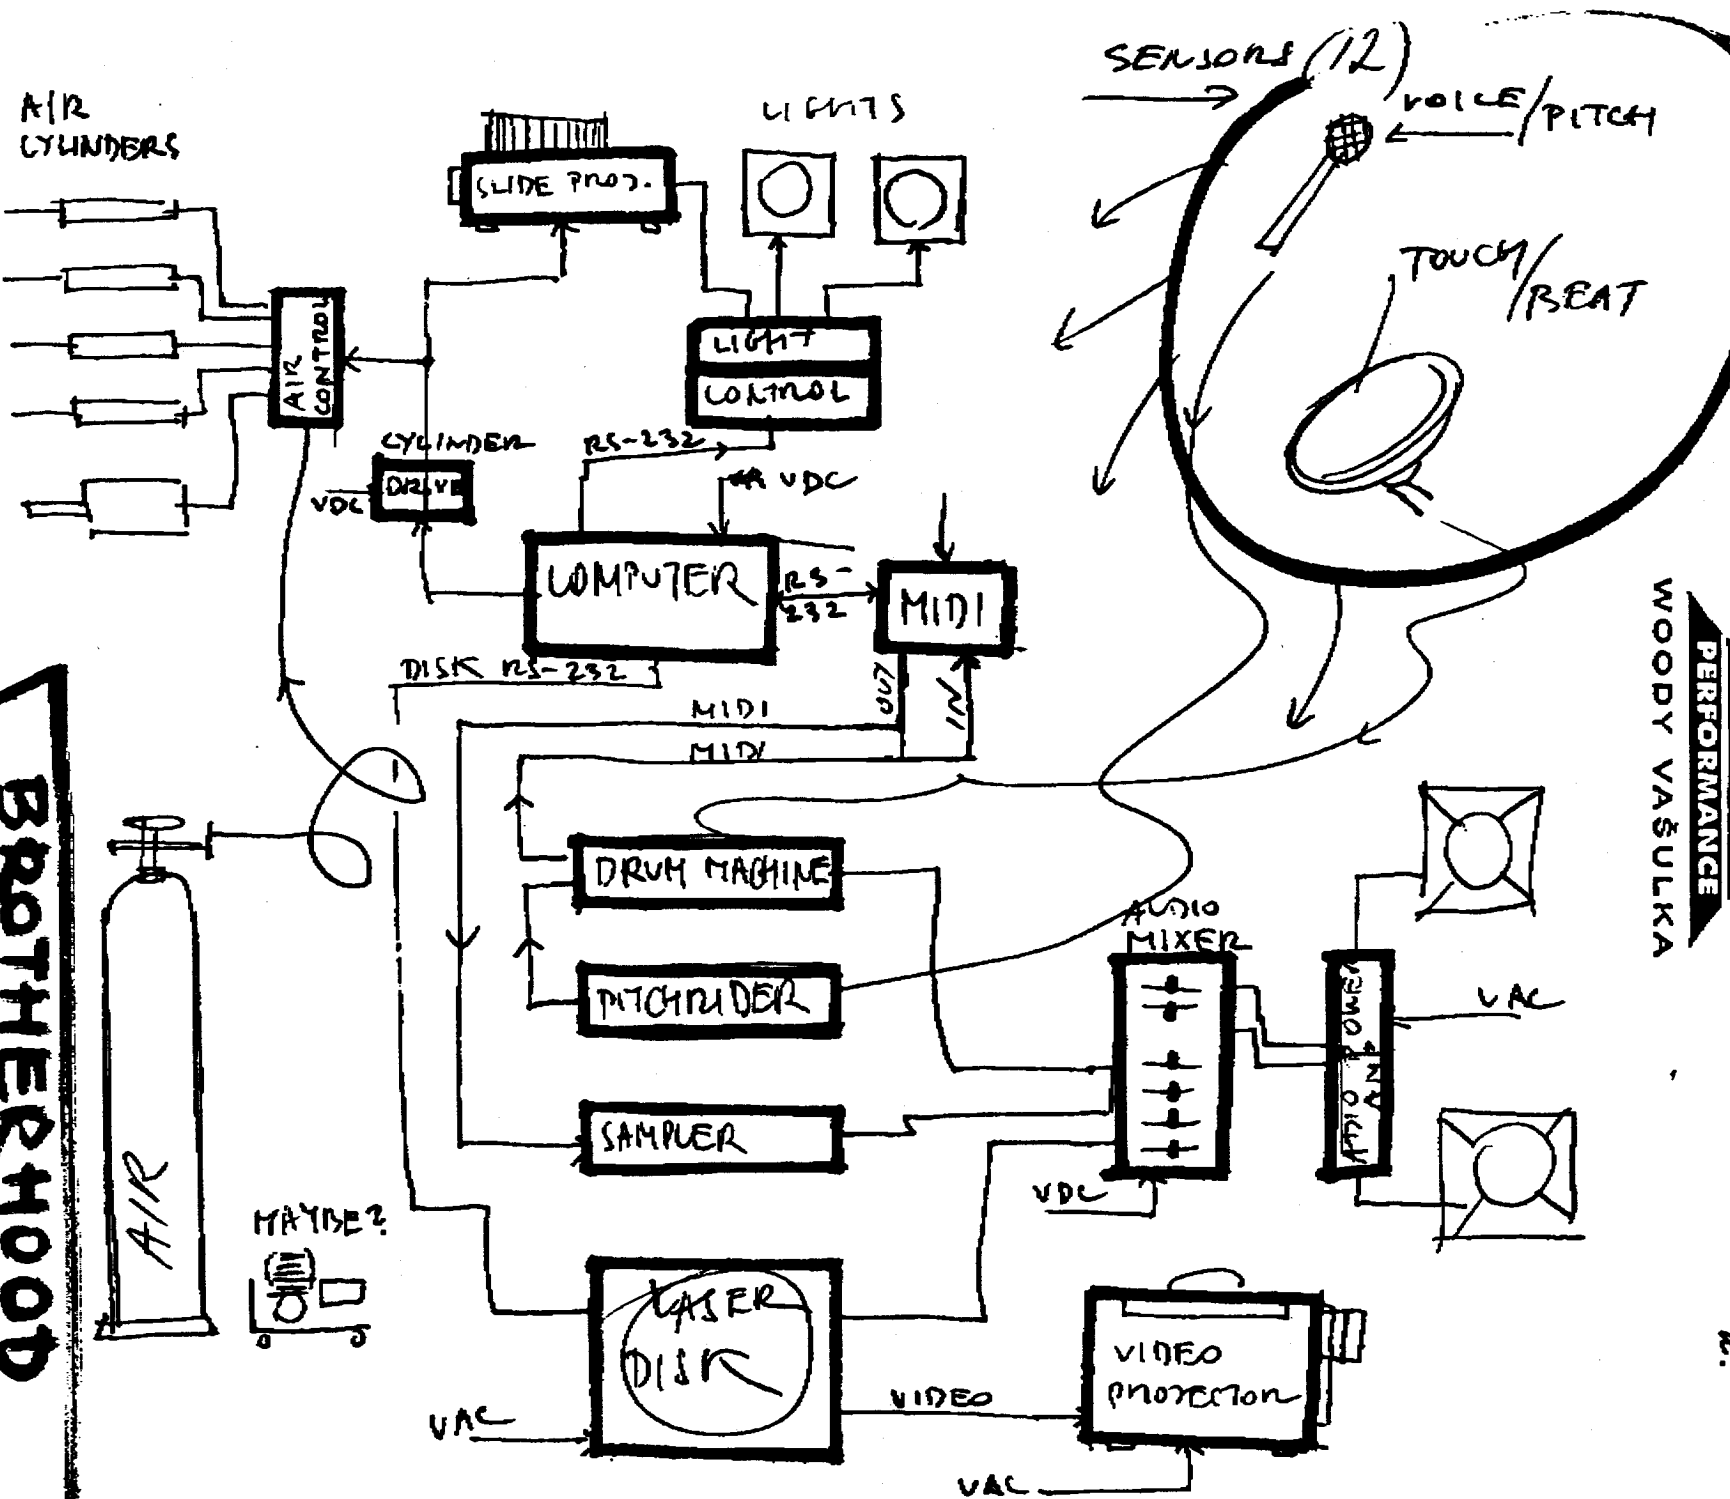 SENSORS (12)
VOICE/PITCH
TOUCH/BEAT
AIR
CYLINDERS
SLIDE PROJ.
LIGHTS
AIR
CONTROL
LIGHT
CONTROL
CYLINDER
DRIVE
VDC
RS-232
VDC
COMPUTER
RS-
232
MIDI
DISK RS-232
OUT
IN
MIDI
MIDI
DRUM MACHINE
PITCHRIDER
SAMPLER
AUDIO
MIXER
VDC
AUDIO POWER
AMP
VAC
AIR
MAYBE?
LASER
DISK
VAC
VIDEO
VIDEO
PROJECTOR
VAC
BROTHERHOOD
PERFORMANCE
WOODY VAŠULKA